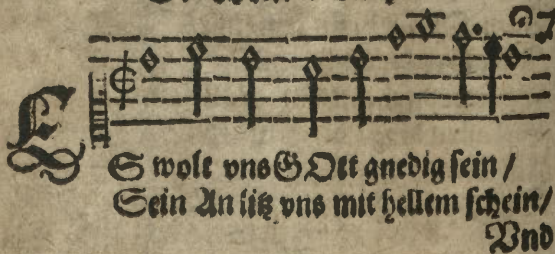 ES wolt vns GOtt gnedig sein /
Sein Antlitz vns mit hellem schein /
Vnd